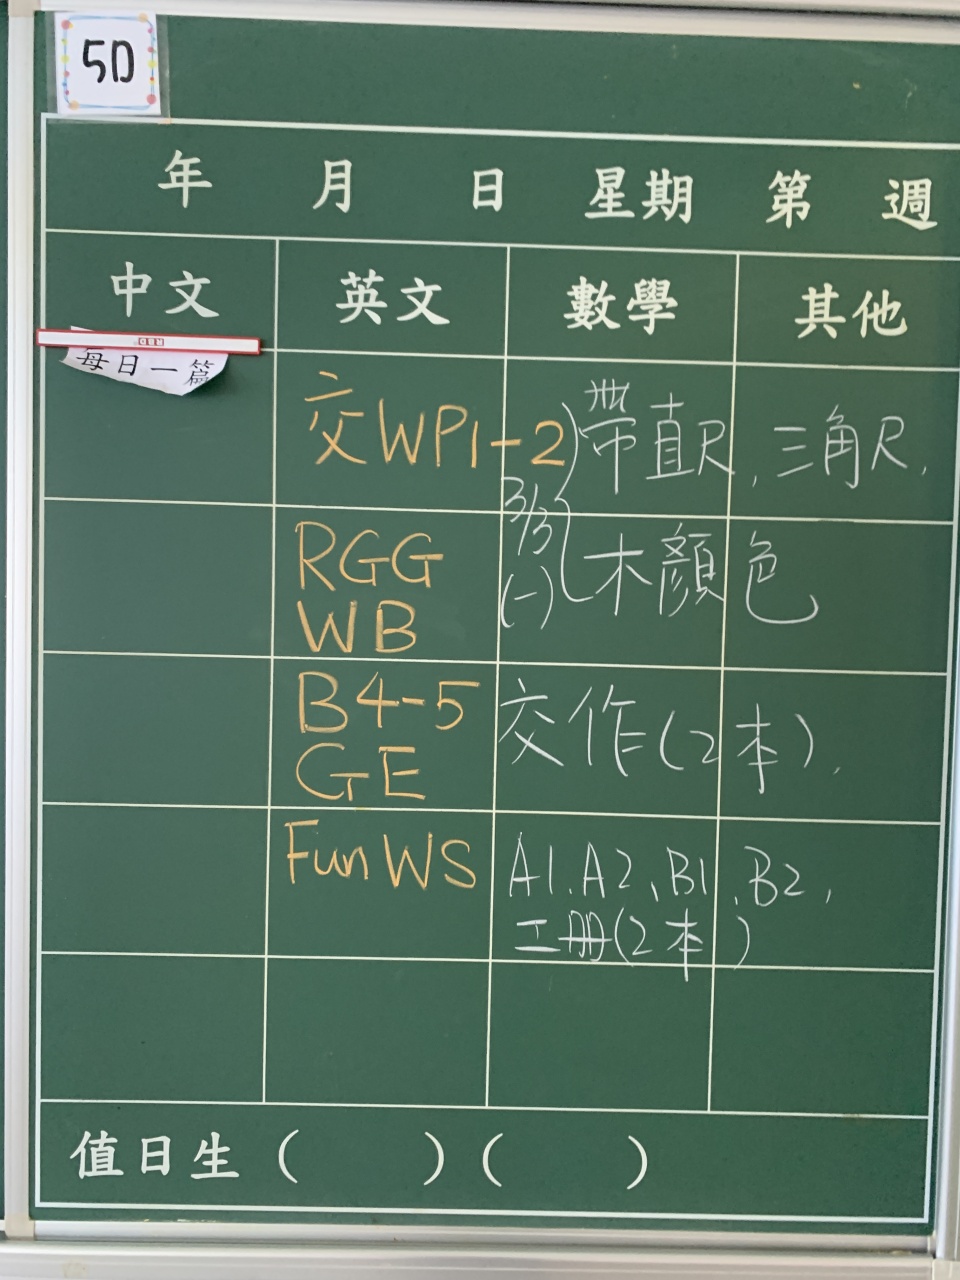 5D
年 月 日 星期 第 週
中文 英文 數學 其他
每日一篇
交WP1-2
3/3 (一)
帶直尺, 三角尺,
木顏色
RGG
WB
B4-5
GE
交作(2本),
Fun WS
A1、A2、B1、B2,
工冊(2本)
值日生 ( ) ( )